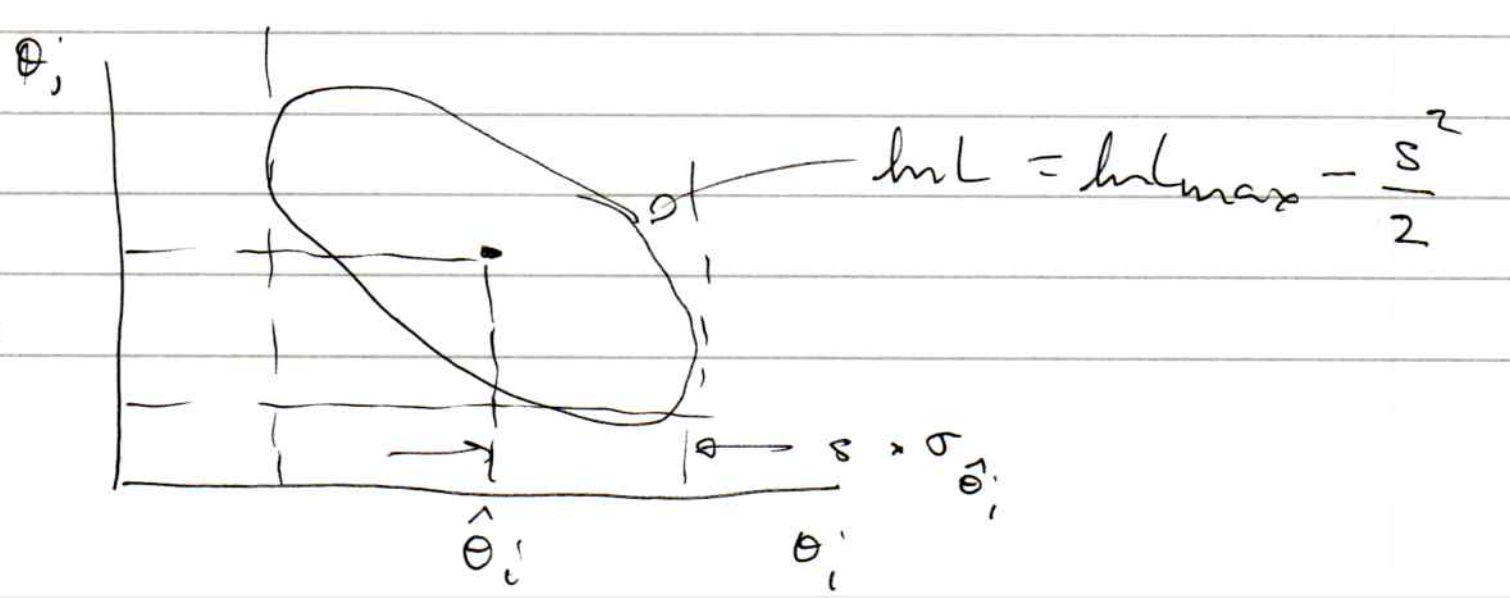 θⱼ
ln L = ln Lmax - s²/2
s × σ_θ̂ᵢ
θ̂ᵢ
θᵢ